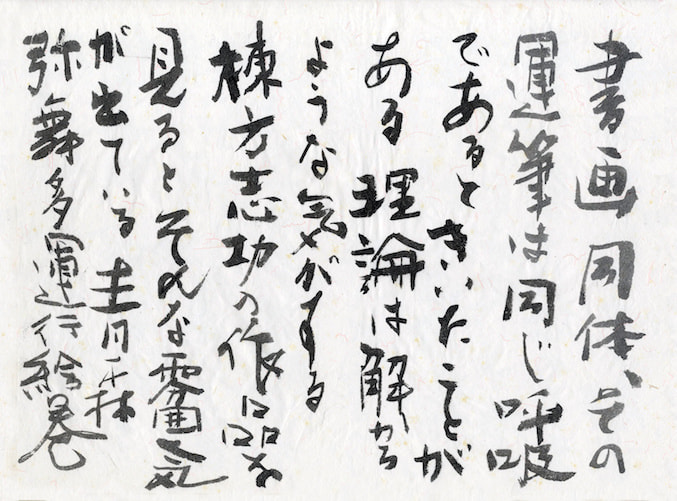 書画同体、その
運筆は同じ呼吸
であるときいたことが
ある 理論は解かる
ような気がする
棟方志功の作品を
見るとそんな雰囲気
が出ている 青森
弥舞多運行絵巻